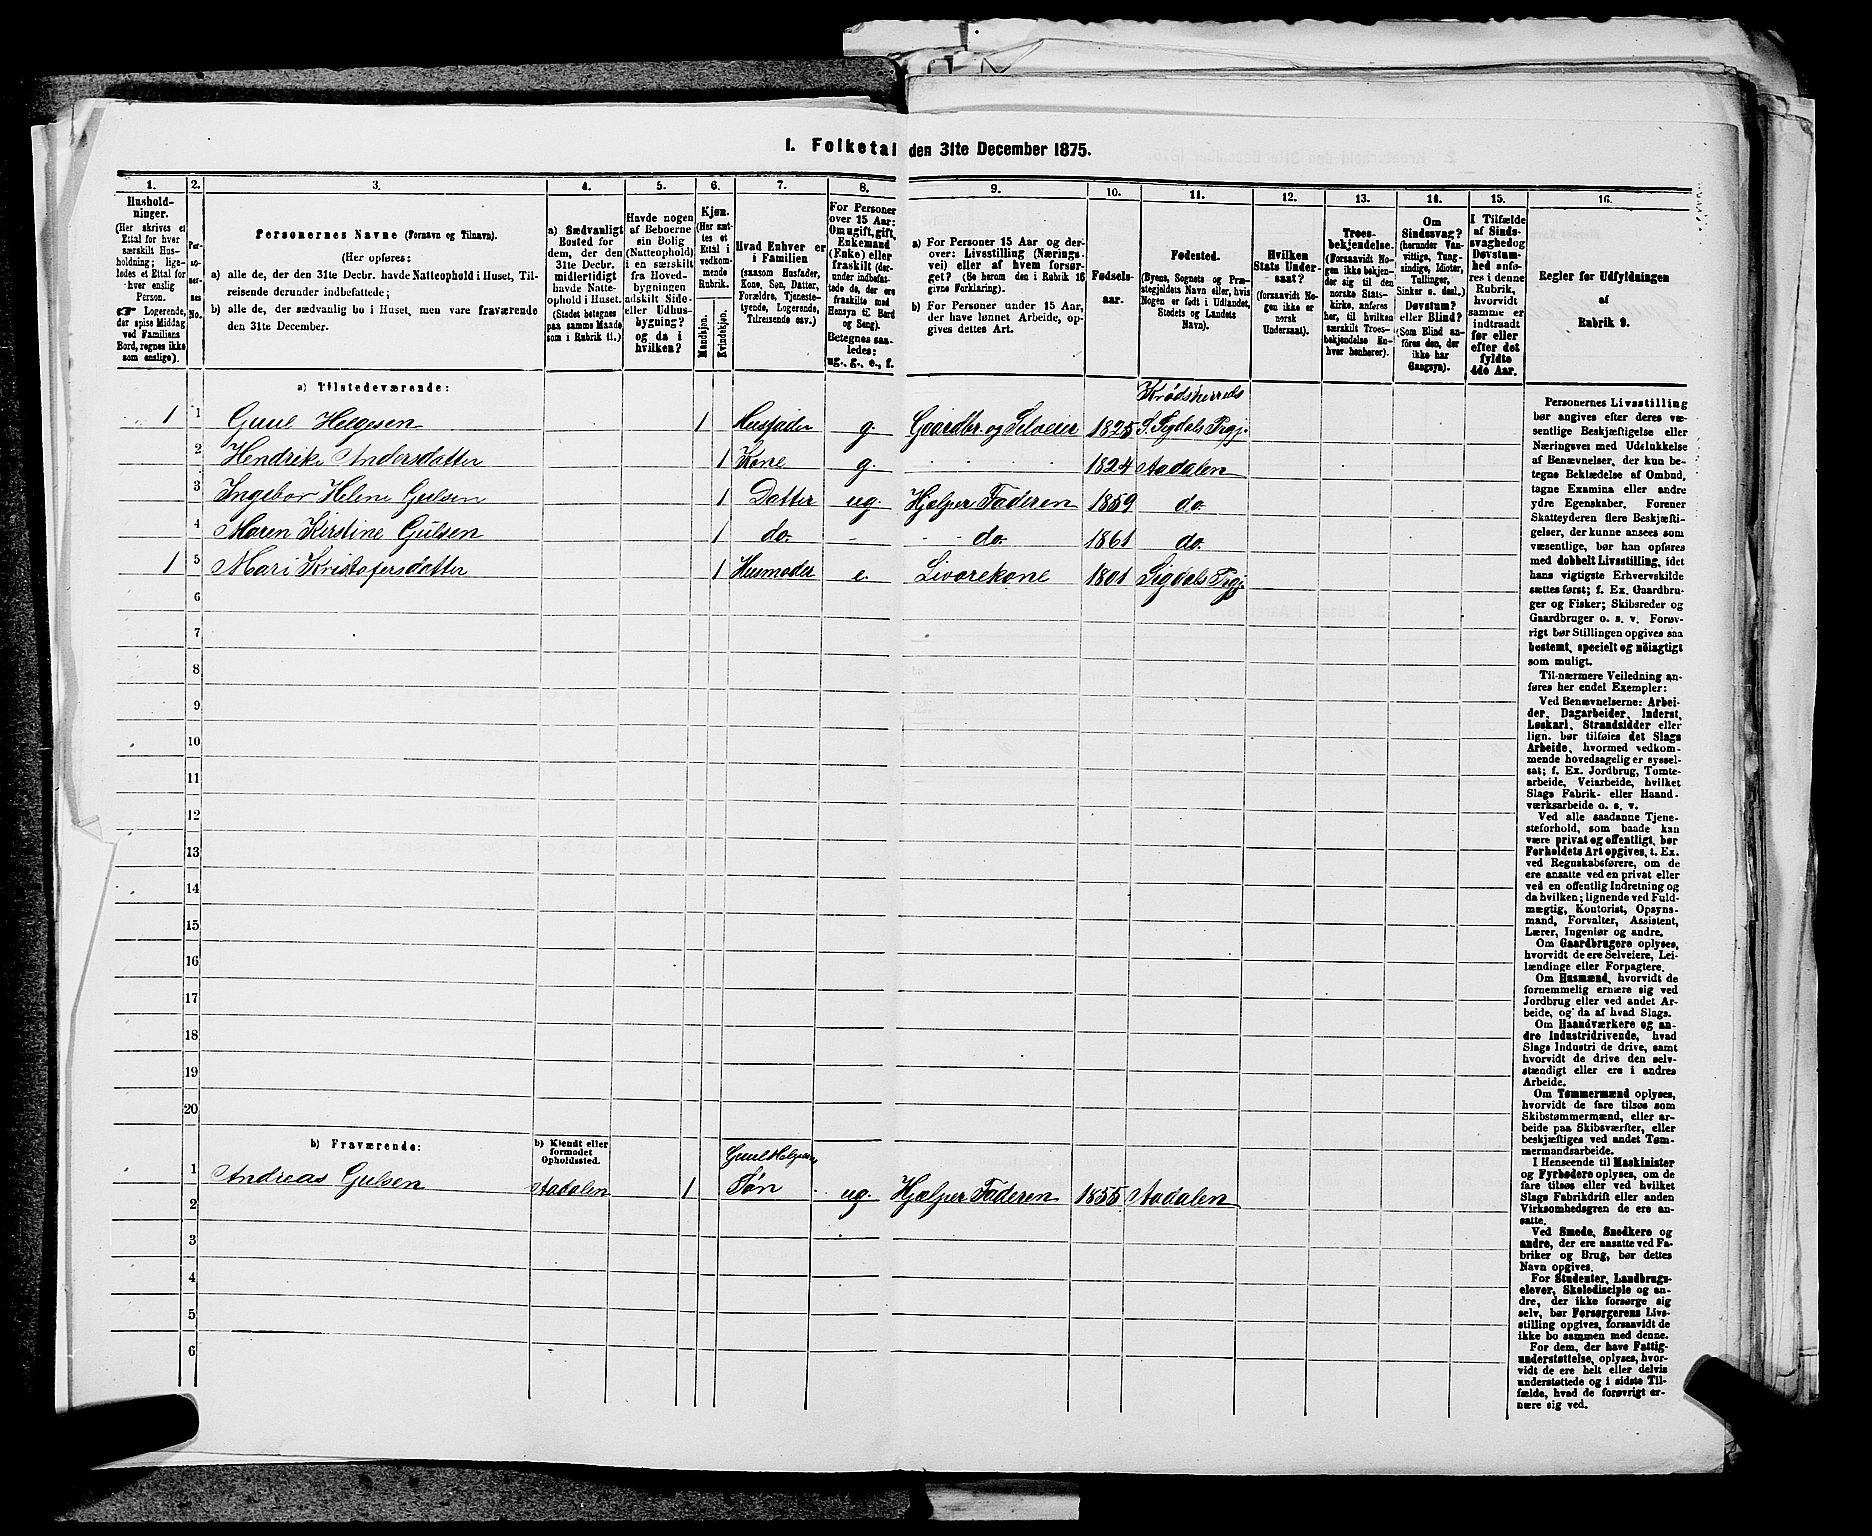 I. Folketal den 31te December 1875.
1. 2. 3. 4. 5. 6. 7. 8. 9. 10. 11. 12. 13. 14. 15. 16.
Hushold-
ninger.
(Her skrives et
Ettal for hver
særskilt Hus-
holdning; lige-
ledes et Ettal for
hver enslig
Person.
☛ Logerende,
der spise Middag
ved Familiens
Bord, regnes ikke
som enslige).
Per-
so-
ner-
nes
No.
Personernes Navne (Fornavn og Tilnavn).
(Her opføres:
a) alle de, der den 31te Decbr. havde Natteophold i Huset, Til-
reisende derunder indbefattede;
b) alle de, der sædvanlig bo i Huset, men vare fraværende
den 31te December.
a) Sædvanligt
Bosted for
dem, der den
31te Decbr.
midlertidigt
havde Natte-
ophold i Huset.
(Stedet betegnes
paa samme Maade,
som i Rubrik 11.)
Havde nogen
af Beboerne
sin Bolig
(Natteophold)
i en særskilt
fra Hoved-
bygningen
adskilt Side-
eller Udhus-
bygning?
og da i
hvilken?
Kjøn.
(Her sæt-
tes et
Ettal i
vedkom-
mende
Rubrik.
Mandkjøn.
Kvindekjøn.
Hvad Enhver er
i Familien
(saasom Husfader,
Kone, Søn, Datter,
Forældre, Tjeneste-
tyende, Logerende,
Tilreisende osv.)
For Personer
over 15 Aar:
Om ugift, gift,
Enkemand
(Enke) eller
fraskilt (der-
under indbefat-
tede de, der ere
fraskilte med
Hensyn til Bord
og Seng).
Betegnes saa-
ledes:
ug., g., e., f.
a) For Personer 15 Aar og der-
over: Livsstilling (Nærings-
vei) eller af hvem forsør-
get? (Se herom den i Rubrik 16
givne Forklaring).
b) For Personer under 15 Aar,
der have lønnet Arbeide, op-
gives dettes Art.
Fødsels-
aar.
Fødested.
(Byens, Sognets og Præ-
stegjeldets Navn eller, hvis
Nogen er født i Udlandet,
Stedets og Landets
Navn).
Hvilken
Stats Under-
saat?
(forsaavidt No-
gen ikke er
norsk
Undersaat).
Troes-
bekjendelse.
(Forsaavidt No-
gen ikke bekjen-
der sig til den
norske Stats-
kirke, anføres
her, til hvilken
særskilt Troes-
bekjendelse En-
hver henhører).
Om
Sindssvag?
(herunder Van-
vittige, Tung-
sindige, Idioter,
Tullinger,
Sinker o. desl.)
Døvstum?
eller Blind?
(Som Blind an-
føres den, der
ikke har
Gangsyn).
I Tilfælde
af Sinds-
svaghed og
Døvstum-
hed anfø-
res i denne
Rubrik,
hvorvidt
samme er
indtraadt
før eller
efter det
fyldte
4de Aar.
Regler for Udfyldningen
af
Rubrik 9.
a) Tilstedeværende:
Krødsherreds
1 1 Guul Helgesen 1 Husfader g. Gaardbr. og Selveier 1825 S. Sigdals Prgj.
2 Hendrike Andersdatter 1 Kone g. 1824 Aadalen
3 Ingebor Helene Gulsen 1 Datter ug. Hjælper Faderen 1859 do
4 Maren Kirstine Gulsen 1 do. - do. 1861 do.
1 5 Mari Kristofersdatter 1 Husmoder e. Livørekone 1801 Sigdals Prgj.
6
7
8
9
10
11
12
13
14
15
16
17
18
19
20
b) Fraværende:
b) Kjendt eller
formodet
Opholdssted.
Guul Helgesens
1 Andreas Gulsen Aadalen 1 Søn ug. Hjælper Faderen 1855 Aadalen
2
3
4
5
6
Personernes Livsstilling
bør angives efter deres væ-
sentlige Beskjæftigelse eller
Næringsvei med Udelukkelse
af Benævnelser, der kun be-
tegne Beklædelse af Ombud,
tagne Examina eller andre
ydre Egenskaber. Forener
Skatteyderen flere Beskjæfti-
gelser, der kunne ansees som
væsentlige, bør han opføres
med dobbelt Livsstilling, idet
hans vigtigste Erhvervskilde
sættes først; f. Ex. Gaardbru-
ger og Fisker; Skibsreder og
Gaardbruger o. s. v. Forøv-
rigt bør Stillingen opgives saa
bestemt, specielt og nøiagtigt
som muligt.
Til nærmere Veiledning an-
føres her endel Exempler:
Ved Benævnelserne: Arbei-
der, Dagarbeider, Inderst,
Løskarl, Strandsidder eller
lign. bør tilføies det Slags
Arbeide, hvormed vedkom-
mende hovedsagelig er syssel-
sat; f. Ex. Jordbrug, Tomte-
arbeide, Veiarbeide, hvilket
Slags Fabrik- eller Haand-
værksarbeide o. s. v.
Ved alle saadanne Tjene-
steforhold, som baade kan
være privat og offentligt, bør
Forholdets Art opgives, t. Ex.
ved Regnskabsførere, om de
ere ansatte ved en privat eller
ved en offentlig Indretning og
da hvilken; lignende ved Fuld-
mægtig, Kontorist, Opsyns-
mand, Forvalter, Assistent,
Lærer, Ingeniør og andre.
Om Gaardbrugere oplyses,
hvorvidt de ere Selveiere, Lei-
lændinge eller Forpagtere.
Om Husmænd, hvorvidt de
fornemmelig ernære sig ved
Jordbrug eller ved andet Ar-
beide, og da af hvad Slags.
Om Haandværkere og an-
dre Industridrivende, hvad
Slags Industri de drive, samt
hvorvidt de drive den selv-
stændigt eller ere i andres
Arbeide.
Om Tømmermænd oplyses,
hvorvidt de fare tilsøs som
Skibstømmermænd, eller ar-
beide paa Skibsværfter, eller
beskjæftiges ved andet Tøm-
mermandsarbeide.
I Henseende til Maskinister
og Fyrbødere oplyses, om de
fare tilsøs eller ved hvilket
Slags Fabrikdrift eller anden
Virksomhedsgren de ere an-
satte.
Ved Smede, Snedkere og
andre, der ere ansatte ved Fa-
briker og Brug, bør dettes
Navn opgives.
For Studenter, Landbrugs-
elever, Skoledisciple og an-
dre, der ikke forsørge sig
selv, bør Forsørgerens Livs-
stilling opgives, forsaavidt de
ikke bo sammen med denne.
For dem, der have Fattig-
understøttelse, oplyses, hvor-
vidt de ere helt eller delvis
understøttede og i sidste Til-
fælde, hvad de forøvrigt er-
nære sig ved.